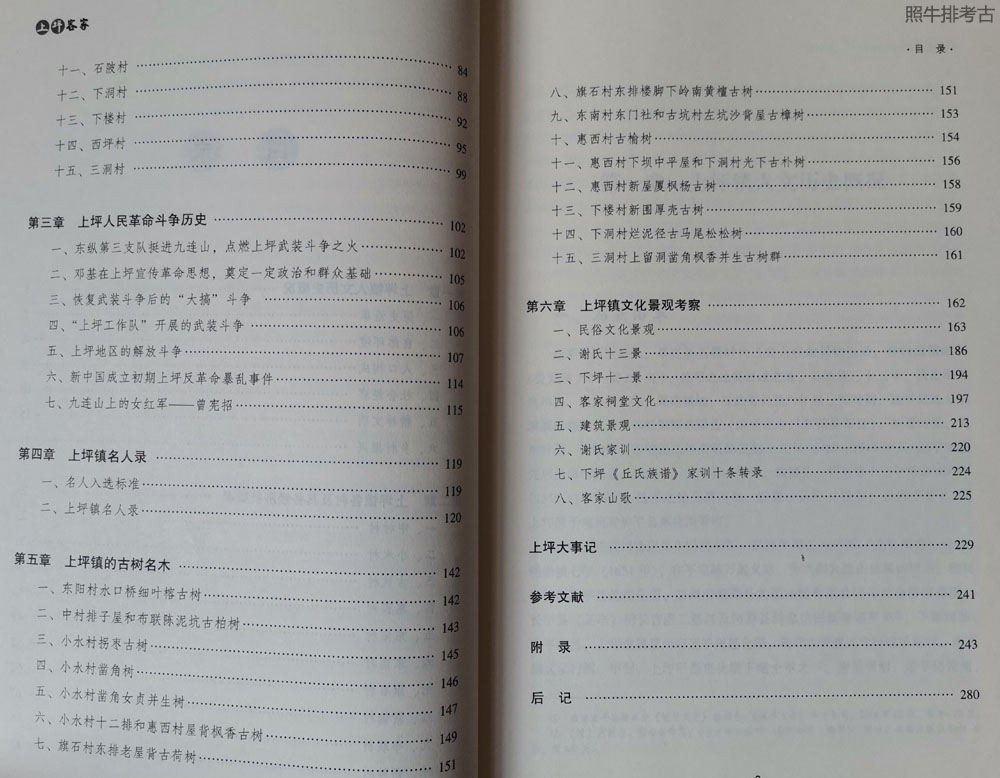 上坪客家
十一、石陂村 84
十二、下洞村 88
十三、下楼村 92
十四、西坪村 95
十五、三洞村 99
第三章 上坪人民革命斗争历史 102
一、东纵第三支队挺进九连山，点燃上坪武装斗争之火 102
二、邓基在上坪宣传革命思想，奠定一定政治和群众基础 105
三、恢复武装斗争后的“大搞”斗争 106
四、“上坪工作队”开展的武装斗争 106
五、上坪地区的解放斗争 107
六、新中国成立初期上坪反革命暴乱事件 114
七、九连山上的女红军——曾宪招 115
第四章 上坪镇名人录 119
一、名人入选标准 119
二、上坪镇名人录 120
第五章 上坪镇的古树名木 142
一、东阳村水口桥细叶榕古树 142
二、中村排子屋和布联陈泥坑古柏树 143
三、小水村拐枣古树 145
四、小水村凿角树 146
五、小水村凿角女贞并生树 147
六、小水村十二排和惠西村屋背枫香古树 149
七、旗石村东排老屋背古荷树 151
照牛排考古
·目 录·
八、旗石村东排楼脚下岭南黄檀古树 151
九、东南村东门社和古坑村左坑沙背屋古樟树 153
十、惠西村古榆树 154
十一、惠西村下坝中平屋和下洞村光下古朴树 156
十二、惠西村新屋厦枫杨古树 158
十三、下楼村新围厚壳古树 159
十四、下洞村烂泥径古马尾松松树 160
十五、三洞村上留洞凿角枫香并生古树群 161
第六章 上坪镇文化景观考察 162
一、民俗文化景观 163
二、谢氏十三景 186
三、下坪十一景 194
四、客家祠堂文化 197
五、建筑景观 213
六、谢氏家训 220
七、下坪《丘氏族谱》家训十条转录 224
八、客家山歌 225
上坪大事记 229
参考文献 241
附 录 243
后 记 280